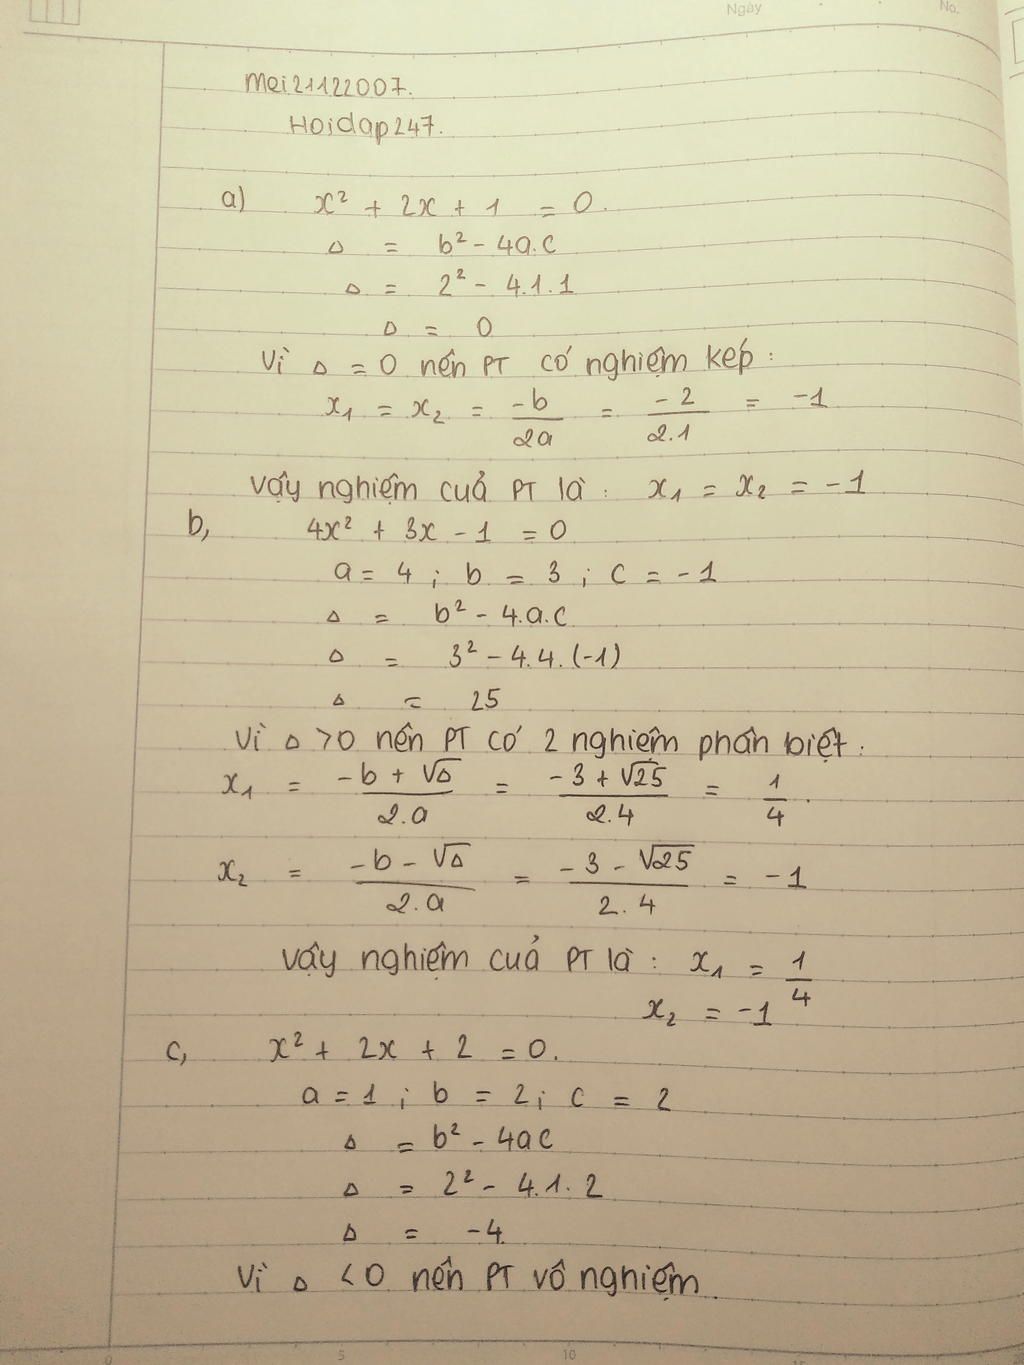 Ngày
No.
Mei21122007.
Hoidap247.
a) x² + 2x + 1 = 0.
Δ = b² - 4a.c
Δ = 2² - 4.1.1
Δ = 0
Vì Δ = 0 nên PT có nghiệm kép :
x₁ = x₂ = -b/2a = -2/2.1 = -1
Vậy nghiệm cuả PT là : x₁ = x₂ = -1
b, 4x² + 3x - 1 = 0
a = 4 ; b = 3 ; c = -1
Δ = b² - 4.a.c
Δ = 3² - 4.4.(-1)
Δ = 25
Vì Δ >0 nên PT có 2 nghiệm phân biệt :
x₁ = -b + √Δ/2.a = -3 + √25/2.4 = 1/4.
x₂ = -b - √Δ/2.a = -3 - √25/2.4 = -1
Vậy nghiệm cuả PT là : x₁ = 1/4
x₂ = -1
c, x² + 2x + 2 = 0.
a = 1 ; b = 2 ; c = 2
Δ = b² - 4ac
Δ = 2² - 4.1.2
Δ = -4
Vì Δ <0 nên PT vô nghiệm.
0 5 10 15